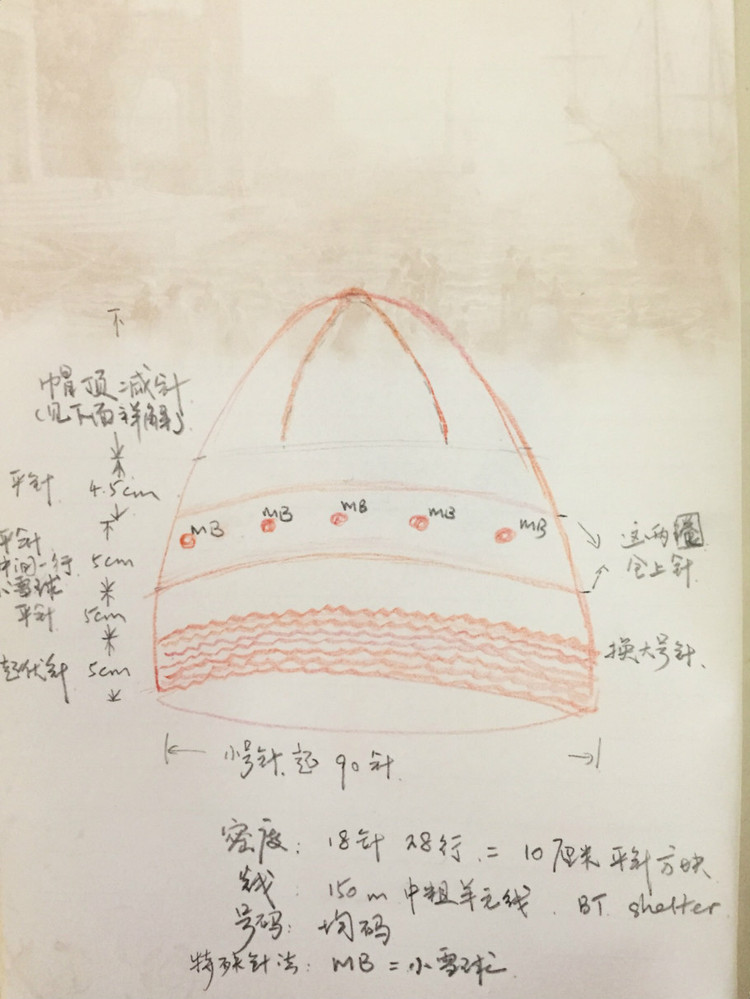 帽顶减针
(见下面详解)
平针 4.5cm
MB MB MB MB MB
平针
中间一行
小雪球
5cm
这两圈
全上针
平针 5cm
换大号针
起伏针 5cm
小号针起90针
密度: 18针 28行 = 10厘米平针方块
线: 150m 中粗羊毛线. BT shelter
号码: 均码
特殊针法: MB = 小雪球